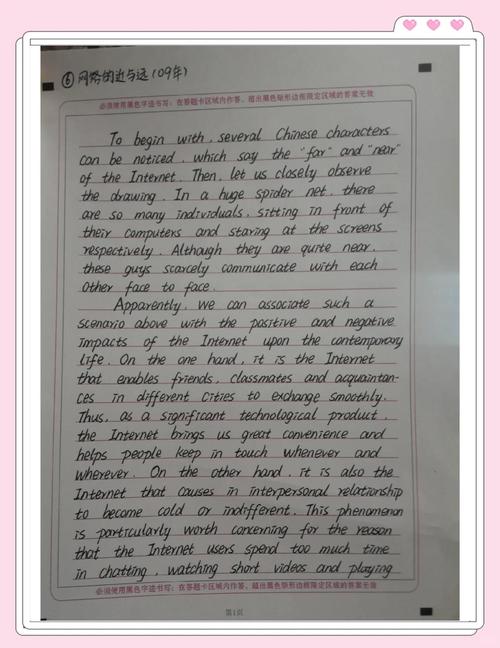 ⑥ 网络的近与远(09年)
必须使用黑色字迹书写;在答题卡区域内作答,超出黑色矩形边框限定区域的答案无效
To begin with, several Chinese characters
can be noticed, which say the "far" and "near"
of the Internet. Then, let us closely observe
the drawing. In a huge spider net, there
are so many individuals, sitting in front of
their computers and staring at the screens
respectively. Although they are quite near,
these guys scarcely communicate with each
other face to face.
Apparently, we can associate such a
scenario above with the positive and negative
impacts of the Internet upon the contemporary
life. On the one hand, it is the Internet
that enables friends, classmates and acquaintan-
ces in different cities to exchange smoothly.
Thus, as a significant technological product,
the Internet brings us great convenience and
helps people keep in touch whenever and
wherever. On the other hand, it is also the
Internet that causes in interpersonal relationship
to become cold or indifferent. This phenomenon
is particularly worth concerning for the reason
that the Internet users spend too much time
in chatting, watching short videos and playing
必须使用黑色字迹书写;在答题卡区域内作答,超出黑色矩形边框限定区域的答案无效
第1页